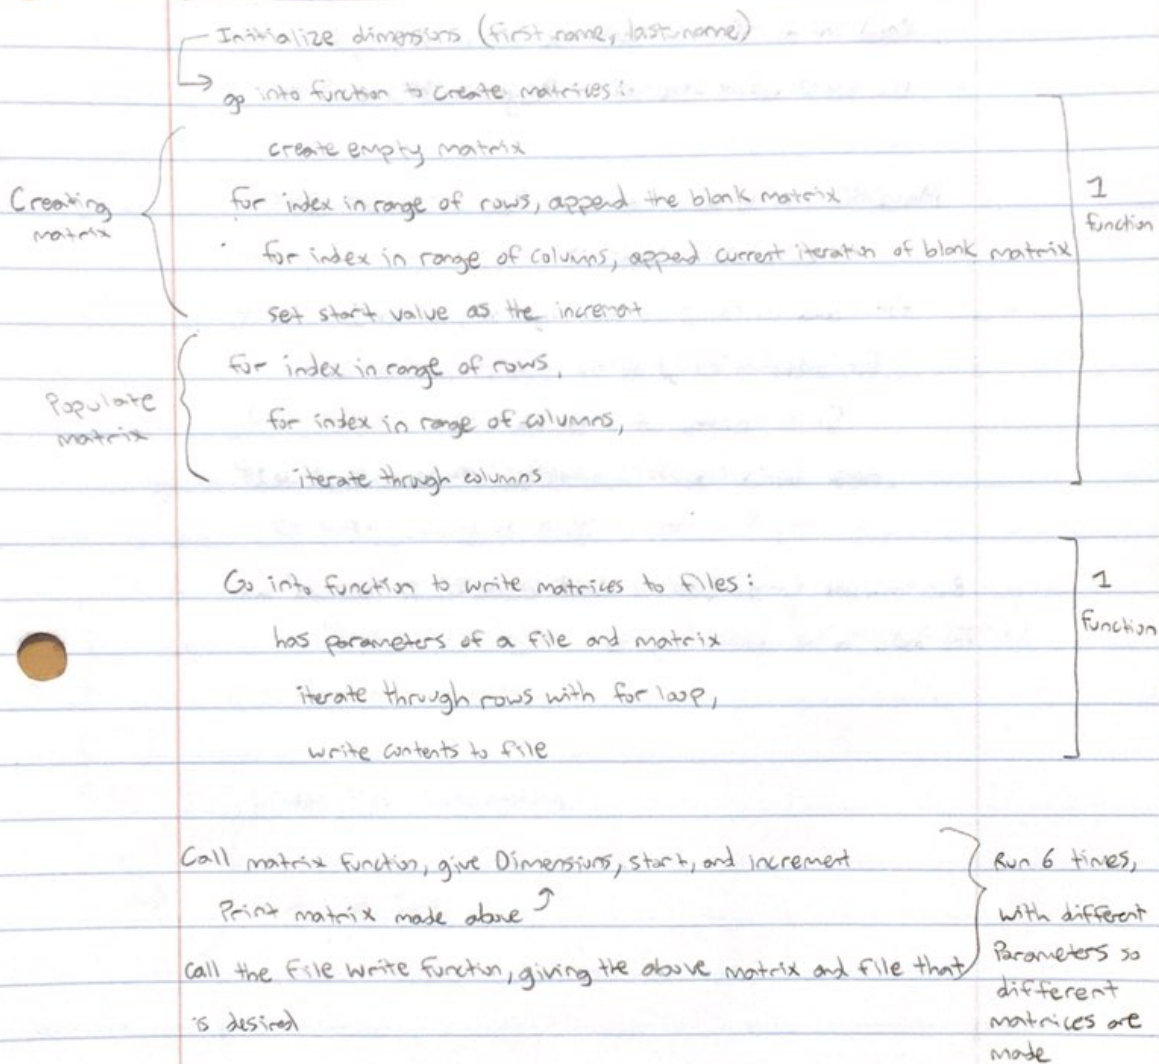 Initialize dimensions (first name, last name)
go into function to create matrices:
create empty matrix
Creating
matrix
for index in range of rows, append the blank matrix
for index in range of columns, append current iteration of blank matrix
set start value as the incremnt
1
function
Populate
matrix
for index in range of rows,
for index in range of columns,
iterate through columns
Go into function to write matrices to files:
has parameters of a file and matrix
iterate through rows with for loop,
write contents to file
1
function
Call matrix function, give Dimensions, start, and increment
Print matrix made above
call the file write function, giving the above matrix and file that
is desired
Run 6 times,
with different
Parameters so
different
matrices are
made